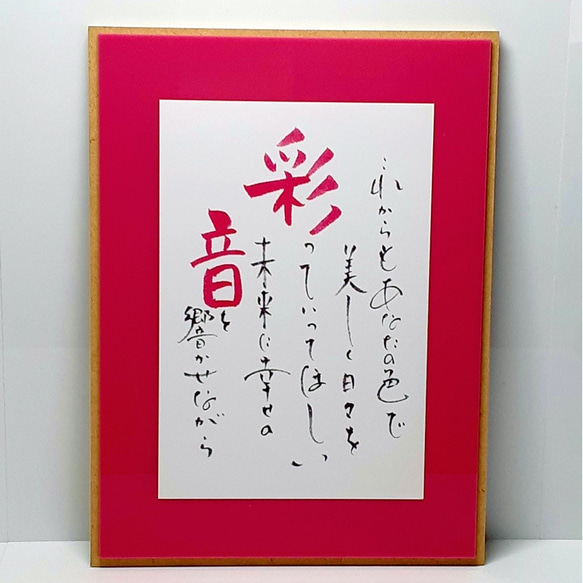 これからもあなたの色で
美しく日々を
彩っていってほしい
未来に幸せの
音を
響かせながら